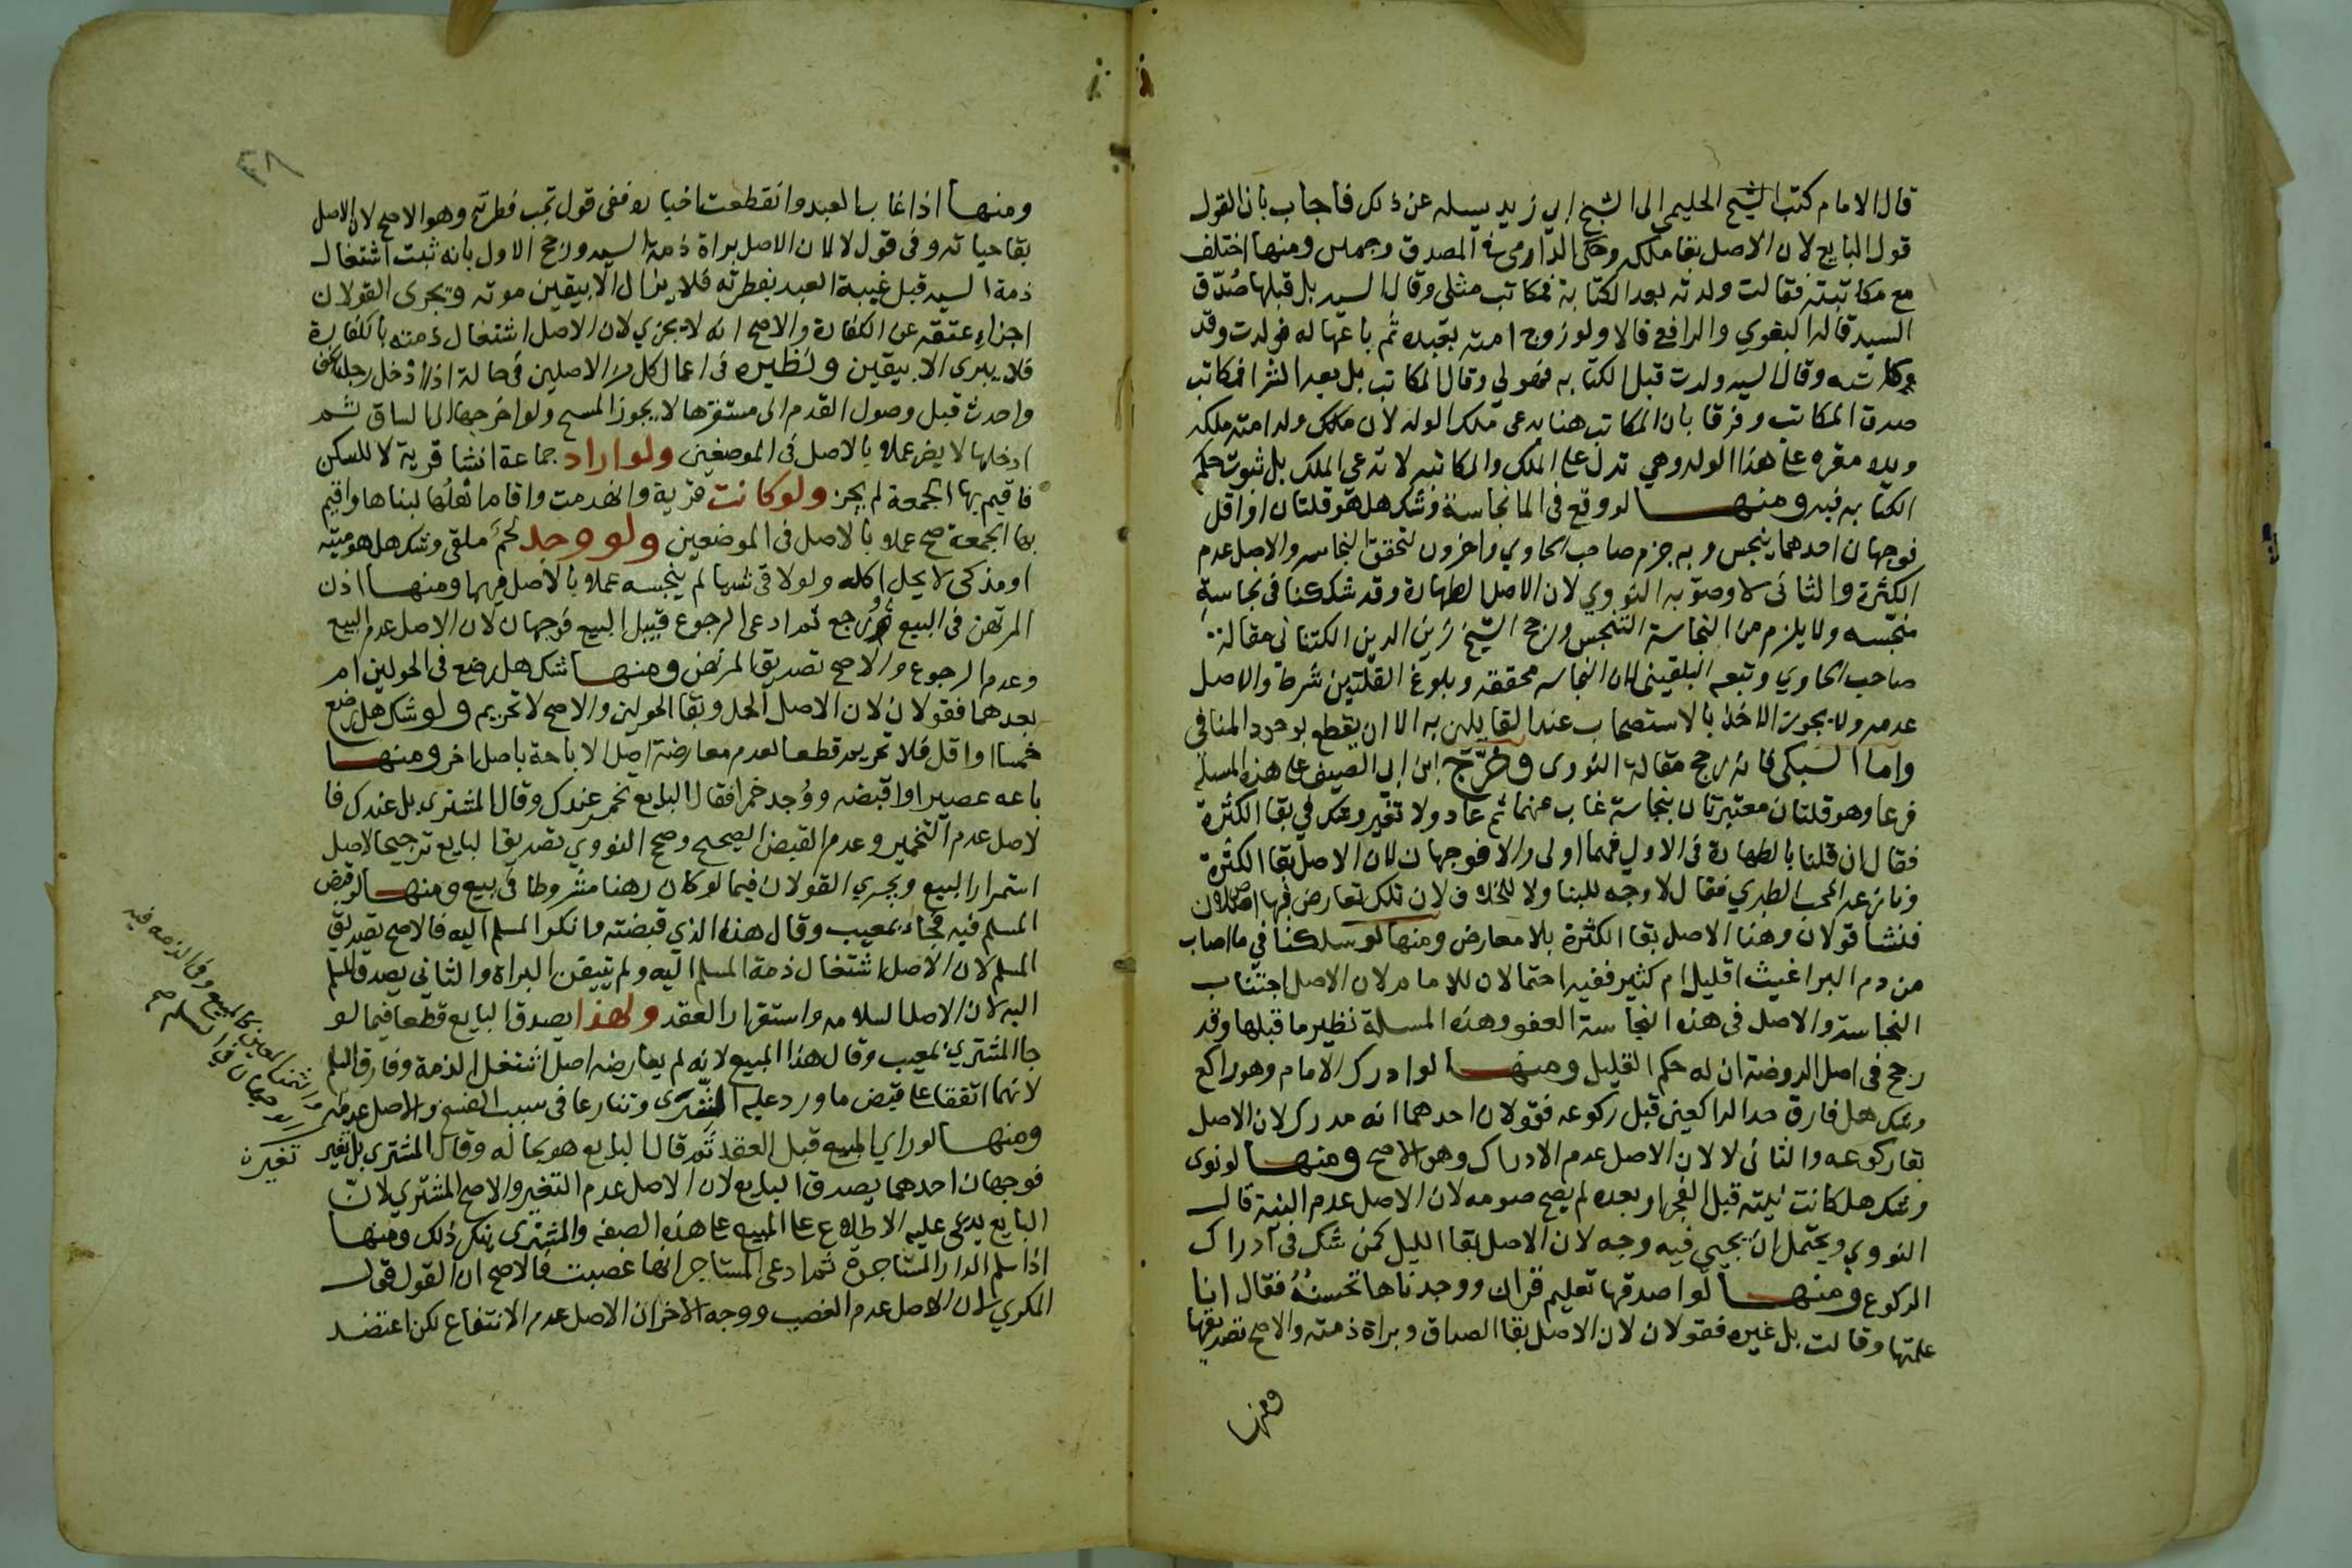 قال الامام كتب الشيخ الحليمي الى الشيخ ابي زيد يسيله عن ذلك فاجاب بان القول
قول البايع لان الاصل بقا ملكه وحكى الدارمي فيه المصدق وجهين ومنها اختلف
مع مكاتبته فقالت ولدته بعد الكتابة فمكاتب مثلي وقال السيد بل قبلها صُدّق
السيد قاله البغوي والرافعي قالا ولو زوج امته بعبده ثم باعها له فولدت وقد
كاتبه وقال السيد ولدت قبل الكتابه فهو لي وقال المكاتب بل بعد الشرا فمكاتب
صدق المكاتب وفرقا بان المكاتب هنا يدعى ملك الولد لان ملك ولد امته ملكه
ويده مقره على هذا الولد وهي تدل على الملك والمكاتبه لا تدعي الملك بل ثبوت حكم
الكتابه فيه ومنها لو وقع في الما نجاسة وشك هل هو قلتان او اقل
فوجهان احدهما ينجس وبه جزم صاحب الحاوي واخرون لتحقق النجاسه والاصل عدم
الكثرة والثانى لا وصوّبه النووي لان الاصل الطهارة وقد شككنا في نجاسة
منجسه ولا يلزم من النجاسة التنجس ورجح الشيخ زين الدين الكتناني مقالة
صاحب الحاوي وتبعه البلقيني لان النجاسه محققه وبلوغ القلتين شرط والاصل
عدمه ولا يجوز الاخذ بالاستصحاب عند القايلين به الا ان يقطع بوجود المنافي
واما السبكي فانه رجح مقالة النووى وخرّج ابن ابي الصيف على هذه المسلة
فرعا وهو قلتان معتبرتان بنجاسة غاب عنهما ثم عاد ولا تغير وشك في بقا الكثرة
فقال ان قلنا بالطهارة في الاولى فهنا اولى والا فوجهان لان الاصل بقا الكثرة
ونازعه المحب الطبري فقال لا وجه للبنا ولا للخلاف لان تلك تعارض فيها اصلان
فنشا قولان وهنا الاصل بقا الكثرة بلا معارض ومنها لو شككنا في ما اصاب
من دم البراغيث اقليل ام كثير ففيه احتمالان للامام لان الاصل اجتناب
النجاسة والاصل في هذه النجاسة العفو وهذه المسلة نظير ما قبلها وقد
رجح في اصل الروضة ان له حكم القليل ومنها لو ادرك الامام وهو راكع
وشك هل فارق حد الراكعين قبل ركوعه فقولان احدهما انه مدرك لان الاصل
بقا ركوعه والثاني لا لان الاصل عدم الادراك وهو الاصح ومنها لو نوى
وشك هل كانت نيته قبل الفجر او بعده لم يصح صومه لان الاصل عدم النية قال
النووي ويحتمل ان يجي فيه وجه لان الاصل بقا الليل كمن شك في ادراك
الركوع ومنها لو اصدقها تعليم قران ووجدناها تحسنُهُ فقال انا
علمتها وقالت بل غيره فقولان لان الاصل بقا الصداق وبراة ذمته والاصح تصديقها
ومنها
ومنها اذا غاب العبد وانقطعت اخباره ففى قول تجب فطرته وهو الاصح لان الاصل
بقا حياته وفي قول لا لان الاصل براة ذمة السيد ورجح الاول بانه ثبت اشتغال
ذمة السيد قبل غيبة العبد بفطرته فلا يزال الا بيقين موته ويجرى القولان
اجزاء عتقه عن الكفارة والاصح انه لا يجزي لان الاصل اشتغال ذمته بالكفارة
فلا يبرى الا بيقين ونظيره في اعمال كل من الاصلين في حالة اذا ادخل رجله الخف
واحدث قبل وصول القدم الى مستقرها لا يجوز المسح ولو اخرجها الى الساق ثم
ادخلها لا يضر عملا بالاصل في الموضعين ولو اراد جماعة انشا قرية لا للسكن
فاقيم بها الجمعة لم يجز ولو كانت قرية وانهدمت واقام اهلها لبناها واقيم
بها الجمعة صح عملا بالاصل في الموضعين ولو وجد لحم ملقى وشك هل هو ميته
او مذكى لا يحل اكله ولو لاقى شيا لم ينجسه عملا بالاصل فيهما ومنها اذن
المرتهن في البيع ورجع ثم ادعى الرجوع قبل البيع فوجهان لان الاصل عدم البيع
وعدم الرجوع والاصح تصديق المرتهن ومنها شك هل رضع في الحولين ام
بعدهما فقولان لان الاصل الحل وبقا الحولين والاصح لا تحريم ولو شك هل رضع
خمسا او اقل فلا تحريم قطعا لعدم معارضة اصل الاباحة باصل اخر ومنها
باعه عصيرا واقبضه ووُجد خمرا فقال البايع تخمر عندك وقال المشترى بل عندك فا
لاصل عدم التخمير وعدم القبض الصحيح وصح النووي تصديق البايع ترجيحا لاصل
استمرار البيع ويجري القولان فيما لو كان رهنا مشروطا في بيع ومنها لو قبض
المسلم فيه فجاء بمعيب وقال هذا الذي قبضته وانكر المسلم اليه فالاصح تصديق
المسلم لان الاصل اشتغال ذمة المسلم اليه ولم يتيقن البراة والثاني يصدق المسلم
اليه لان الاصل السلامه واستقرار العقد ولهذا يصدق البايع قطعا فيما لو
جا المشتري بمعيب وقال هذا المبيع لانه لم يعارضه اصل اشتغال الذمة وفارق المسلم
لانهما اتفقا على قبض ما ورد عليه الشرى وتنازعا في سبب الفسخ والاصل عدمه
ومنها لو راى المبيع قبل العقد ثم قال البايع هو بحاله وقال المشترى بل تغير
فوجهان احدهما يصدق البايع لان الاصل عدم التغير والاصح المشتري لانّ
البايع يدعى عليه الاطلاع على المبيع على هذه الصفه والمشترى ينكر ذلك ومنها
اذا سلم الدار المستاجرة ثم ادعى المستاجر انها غصبت فالاصح ان القول قول
المكري لان الاصل عدم الغصب ووجه الاخر ان الاصل عدم الانتفاع لكن اعتضد